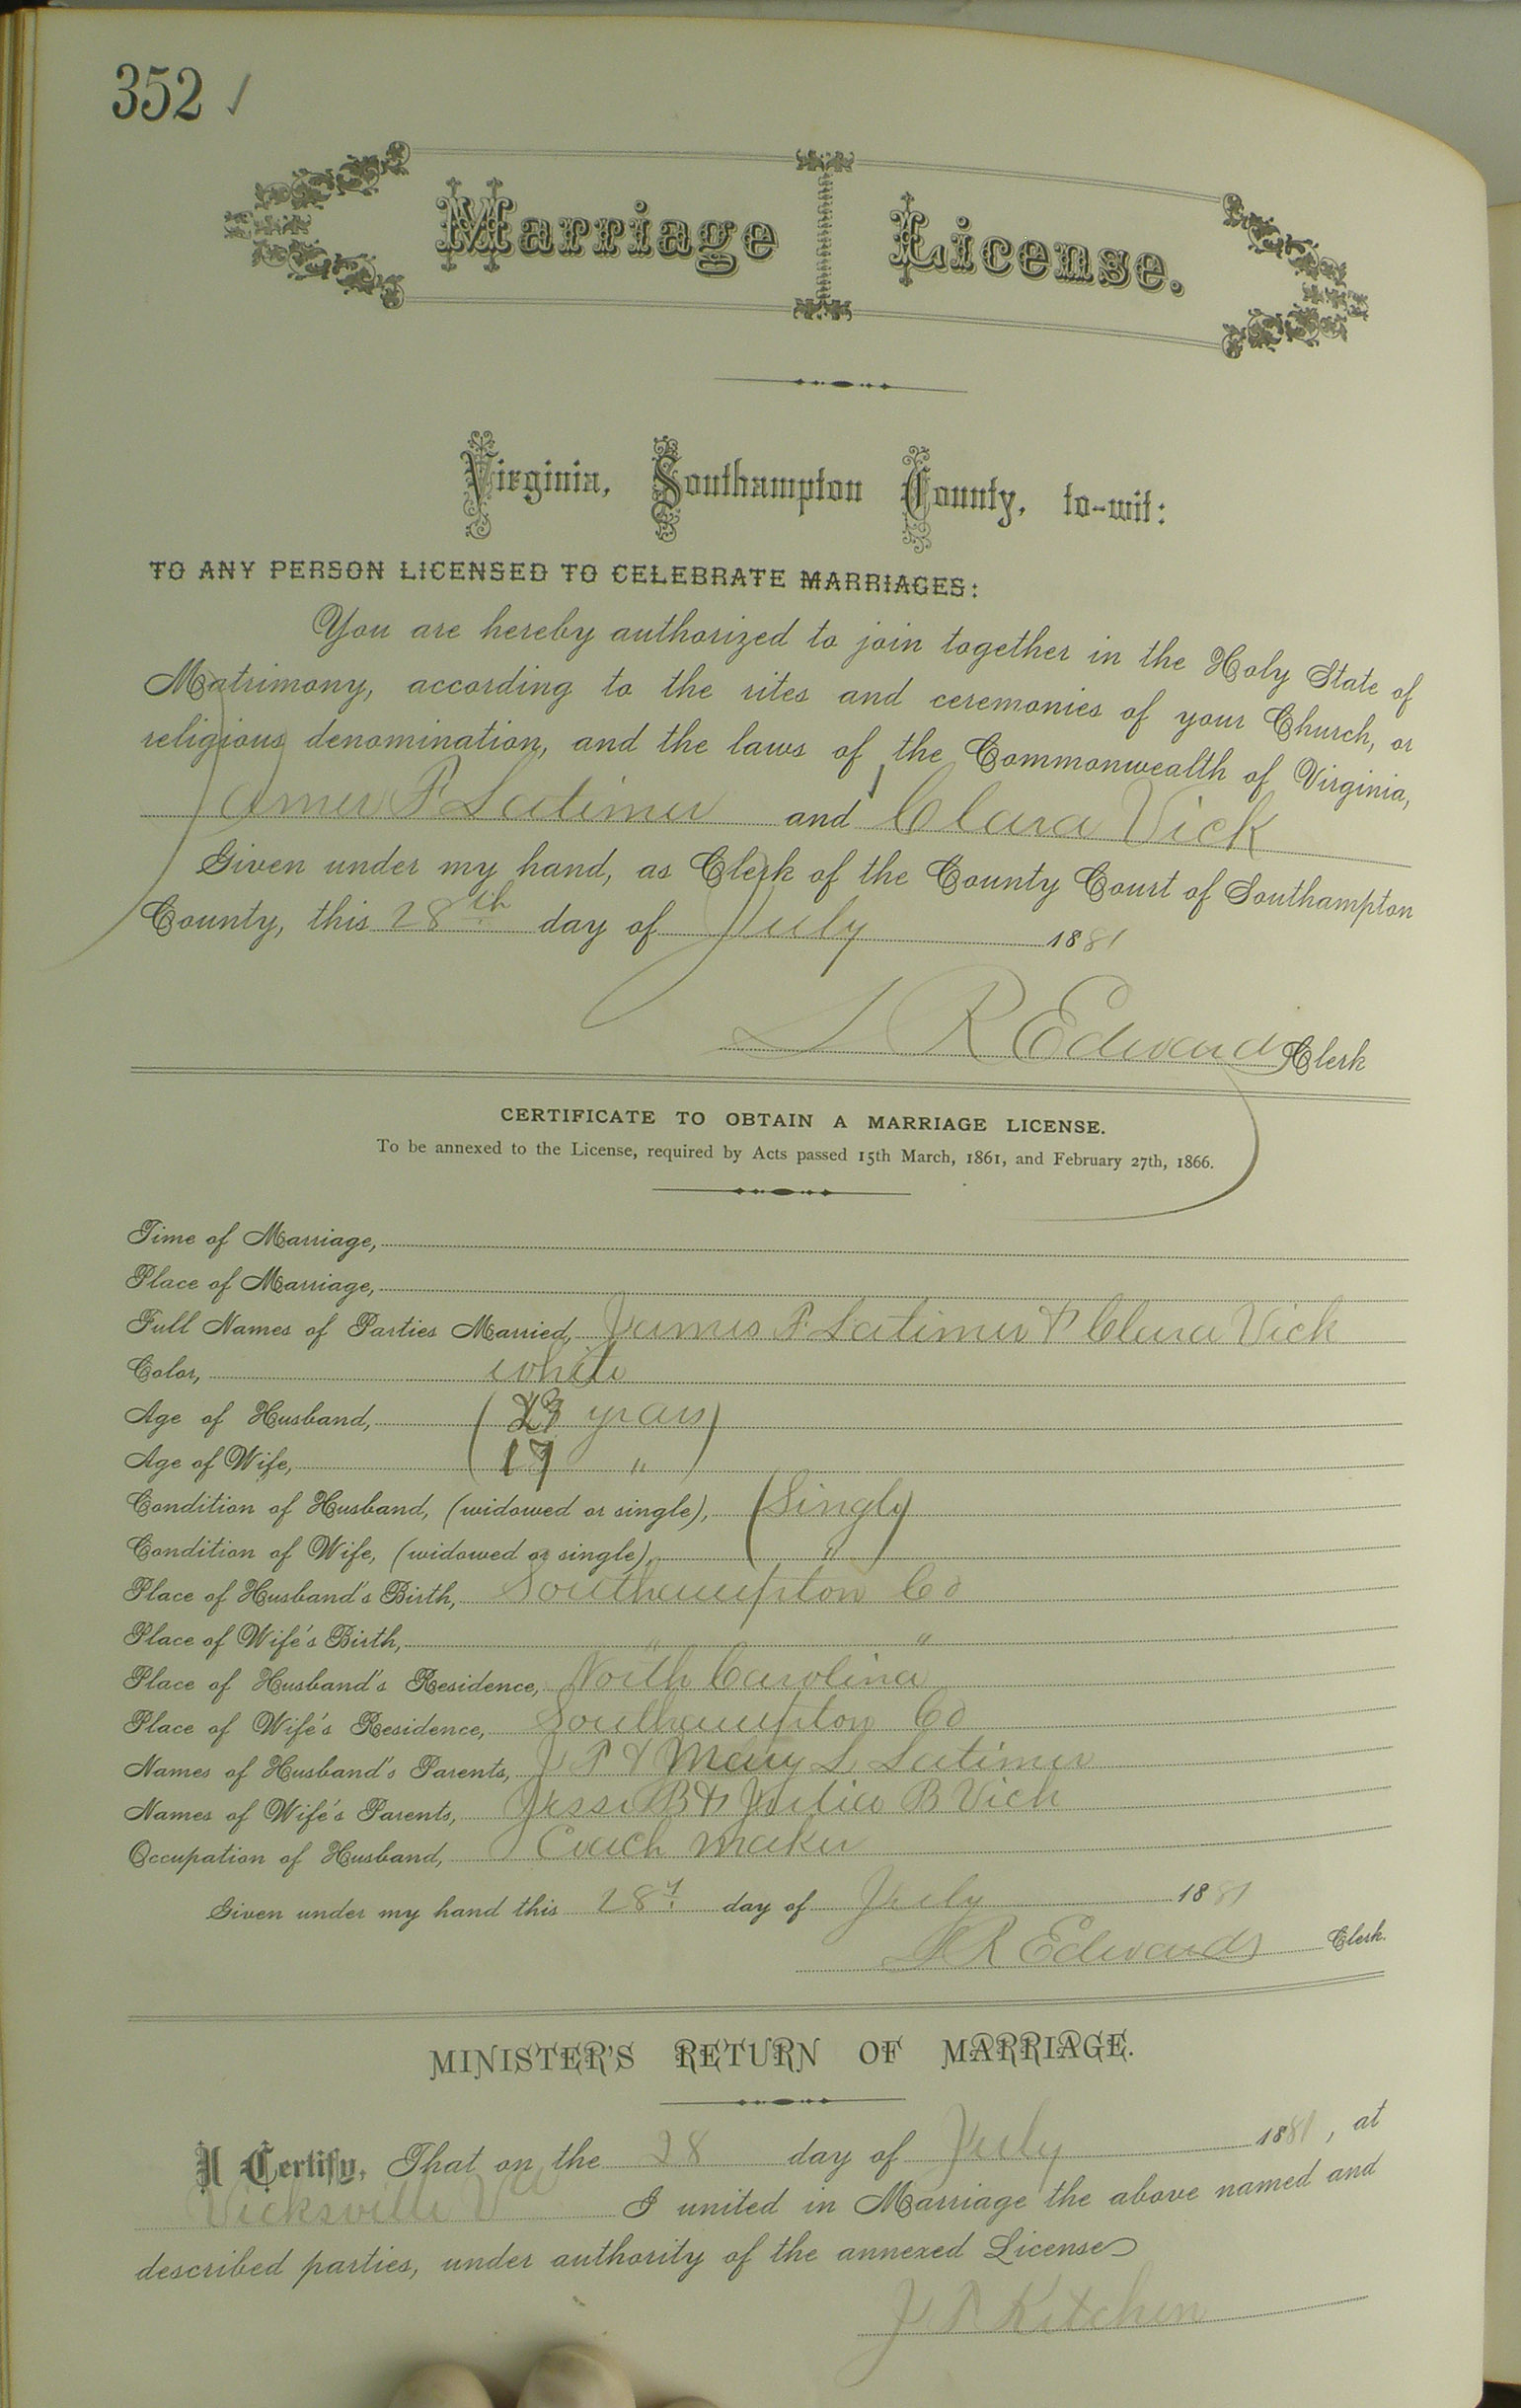 352 ✓
Marriage License.
Virginia, Southampton County, to-wit:
TO ANY PERSON LICENSED TO CELEBRATE MARRIAGES:
You are hereby authorized to join together in the Holy State of
Matrimony, according to the rites and ceremonies of your Church, or
religious denomination, and the laws of the Commonwealth of Virginia,
James P Latimer and Clara Vick
Given under my hand, as Clerk of the County Court of Southampton
County, this 28th day of July 1881
L R Edwards Clerk
CERTIFICATE TO OBTAIN A MARRIAGE LICENSE.
To be annexed to the License, required by Acts passed 15th March, 1861, and February 27th, 1866.
Time of Marriage,
Place of Marriage,
Full Names of Parties Married, James P Latimer & Clara Vick
Color, white
Age of Husband, 23 years
Age of Wife, 17 "
Condition of Husband, (widowed or single), Single
Condition of Wife, (widowed or single), "
Place of Husband's Birth, Southampton Co
Place of Wife's Birth, " "
Place of Husband's Residence, North Carolina
Place of Wife's Residence, Southampton Co
Names of Husband's Parents, J P & Mary L Latimer
Names of Wife's Parents, Jesse B & Julia B Vick
Occupation of Husband, Coach maker
Given under my hand this 28th day of July 1881
L R Edwards Clerk.
MINISTER'S RETURN OF MARRIAGE.
I Certify, That on the 28 day of July 1881, at
Vicksville Va I united in Marriage the above named and
described parties, under authority of the annexed License
Kitchen